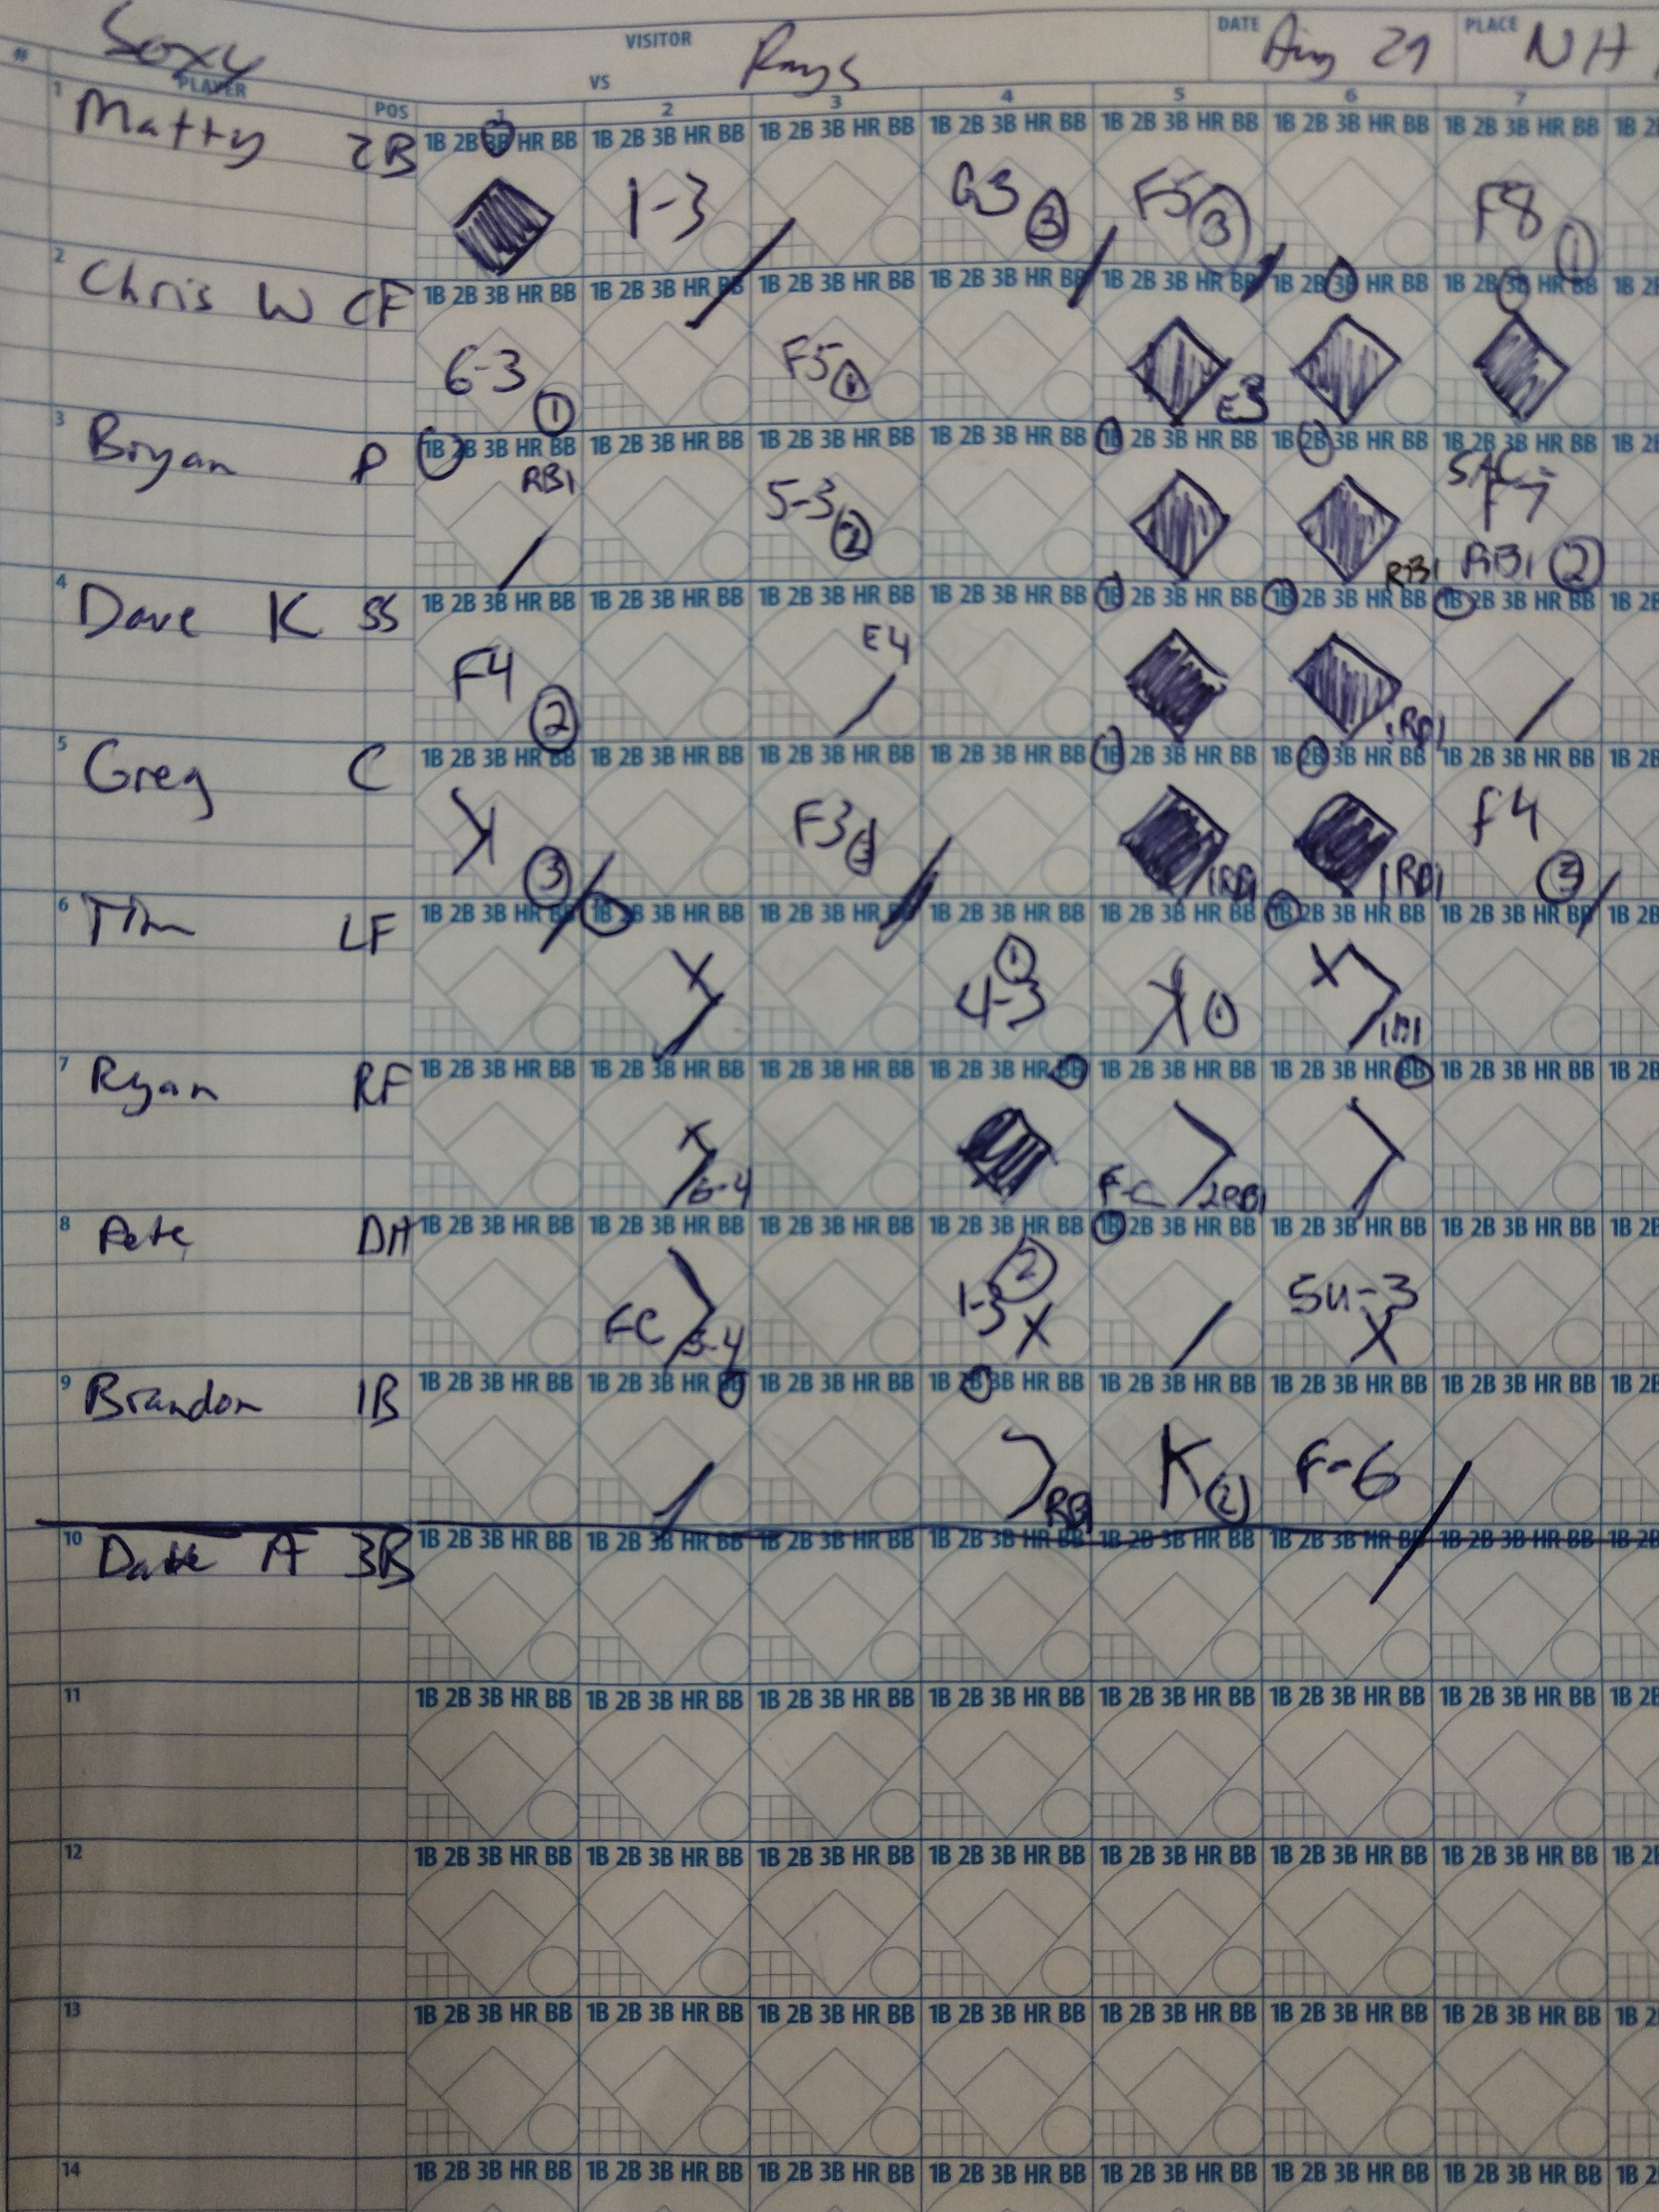 Soxy VISITOR VS Rays DATE Aug 29 PLACE NH
# PLAYER POS 1 2 3 4 5 6 7
1 Matty 2B 1B 2B 3B HR BB 1B 2B 3B HR BB 1B 2B 3B HR BB 1B 2B 3B HR BB 1B 2B 3B HR BB 1B 2B 3B HR BB 1B 2B 3B HR BB 1B 2
1-3 G3 3 F5 3 F8 1
2 Chris W CF 1B 2B 3B HR BB 1B 2B 3B HR BB 1B 2B 3B HR BB 1B 2B 3B HR BB 1B 2B 3B HR BB 1B 2B 3B HR BB 1B 2B 3B HR BB 1B 2
6-3 1 F5 1 E3
3 Bryan P 1B 2B 3B HR BB 1B 2B 3B HR BB 1B 2B 3B HR BB 1B 2B 3B HR BB 1B 2B 3B HR BB 1B 2B 3B HR BB 1B 2B 3B HR BB 1B 2B
RBI 5-3 2 RBI SAC F7 RBI 2
4 Dave K SS 1B 2B 3B HR BB 1B 2B 3B HR BB 1B 2B 3B HR BB 1B 2B 3B HR BB 1B 2B 3B HR BB 1B 2B 3B HR BB 1B 2B 3B HR BB 1B 2B
F4 2 E4 1RBI
5 Greg C 1B 2B 3B HR BB 1B 2B 3B HR BB 1B 2B 3B HR BB 1B 2B 3B HR BB 1B 2B 3B HR BB 1B 2B 3B HR BB 1B 2B 3B HR BB 1B 2B
K 3 F3 3 1RBI 1RBI F4 3
6 Tim LF 1B 2B 3B HR BB 1B 2B 3B HR BB 1B 2B 3B HR BB 1B 2B 3B HR BB 1B 2B 3B HR BB 1B 2B 3B HR BB 1B 2B 3B HR BB 1B 2B
X 1 4-3 K 1 X 1RBI
7 Ryan RF 1B 2B 3B HR BB 1B 2B 3B HR BB 1B 2B 3B HR BB 1B 2B 3B HR BB 1B 2B 3B HR BB 1B 2B 3B HR BB 1B 2B 3B HR BB 1B 2B
X 6-4 F-C 2RBI
8 Pete DH 1B 2B 3B HR BB 1B 2B 3B HR BB 1B 2B 3B HR BB 1B 2B 3B HR BB 1B 2B 3B HR BB 1B 2B 3B HR BB 1B 2B 3B HR BB 1B 2B
FC 5-4 1-3 2 X 5u-3 X
9 Brandon 1B 1B 2B 3B HR BB 1B 2B 3B HR BB 1B 2B 3B HR BB 1B 2B 3B HR BB 1B 2B 3B HR BB 1B 2B 3B HR BB 1B 2B 3B HR BB 1B 2B
RBI K 2 F-6
10 A 3B 1B 2B 3B HR BB 1B 2B 3B HR BB 1B 2B 3B HR BB 1B 2B 3B HR BB 1B 2B 3B HR BB 1B 2B 3B HR BB 1B 2B 3B HR BB 1B 2B
11 1B 2B 3B HR BB 1B 2B 3B HR BB 1B 2B 3B HR BB 1B 2B 3B HR BB 1B 2B 3B HR BB 1B 2B 3B HR BB 1B 2B 3B HR BB 1B 2B
12 1B 2B 3B HR BB 1B 2B 3B HR BB 1B 2B 3B HR BB 1B 2B 3B HR BB 1B 2B 3B HR BB 1B 2B 3B HR BB 1B 2B 3B HR BB 1B 2B
13 1B 2B 3B HR BB 1B 2B 3B HR BB 1B 2B 3B HR BB 1B 2B 3B HR BB 1B 2B 3B HR BB 1B 2B 3B HR BB 1B 2B 3B HR BB 1B 2
14 1B 2B 3B HR BB 1B 2B 3B HR BB 1B 2B 3B HR BB 1B 2B 3B HR BB 1B 2B 3B HR BB 1B 2B 3B HR BB 1B 2B 3B HR BB 1B 2